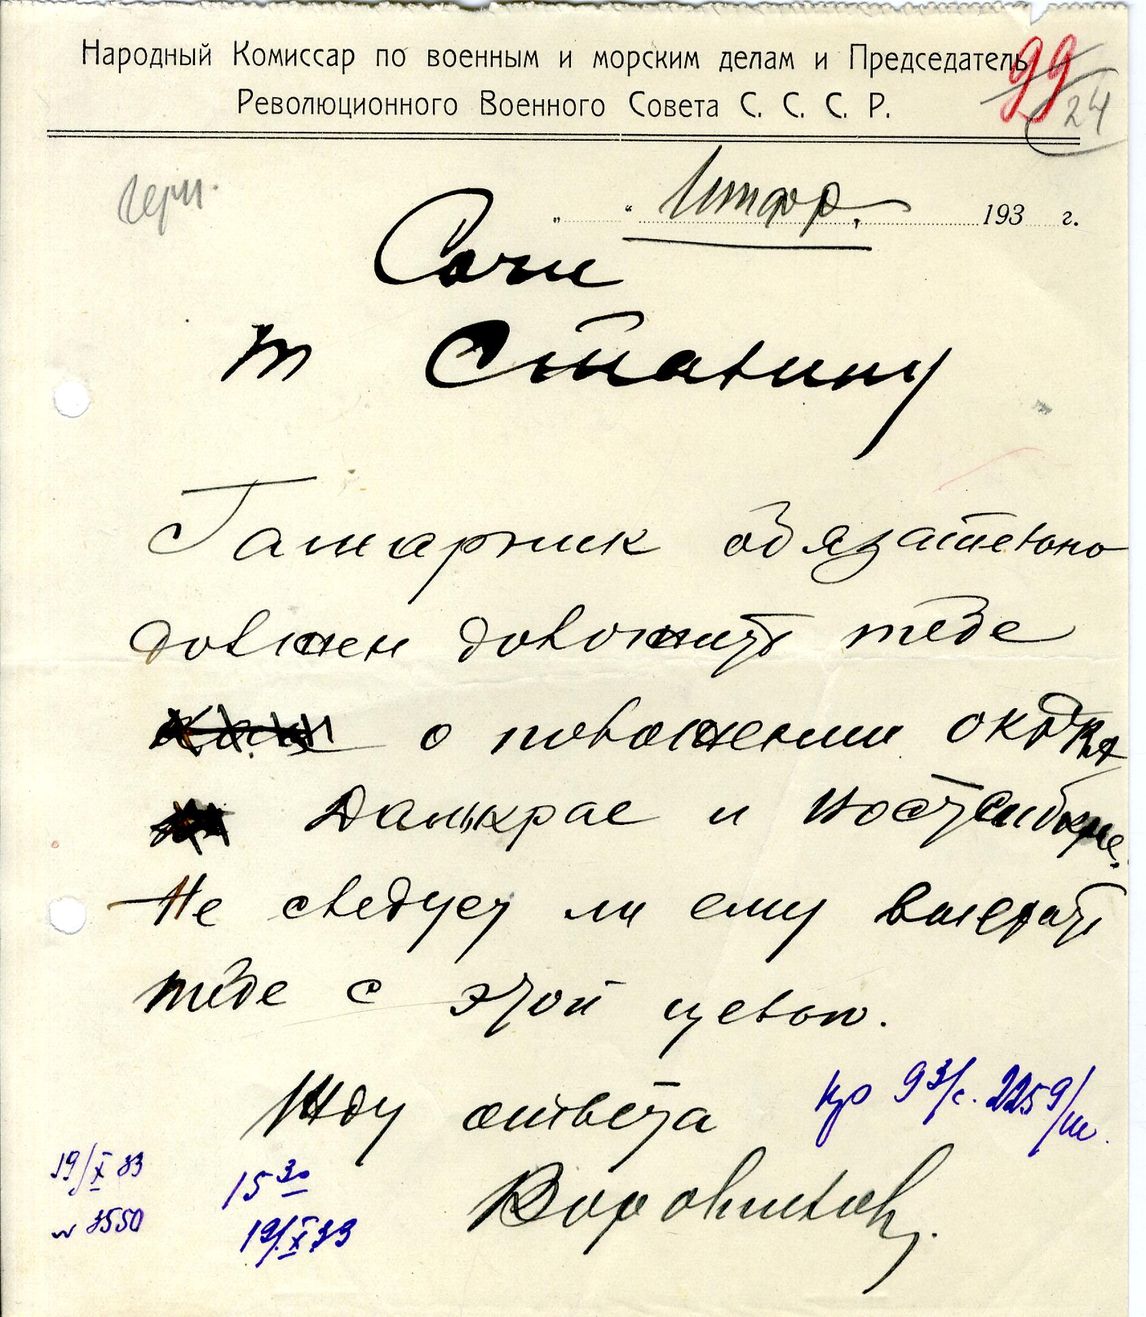 Народный Комиссар по военным и морским делам и Председатель
Революционного Военного Совета С. С. С. Р.
99
24
черн.
„ “ Шифр. 193 г.
Сочи
т Сталину
Гамарник обязательно
должен доложить тебе
о положении
Далькрае и Востсибкрае.
Не следует ли ему выехать
тебе с этой целью.
Жду ответа
19/X 33
15 30
19/X 33
Ворошилов.